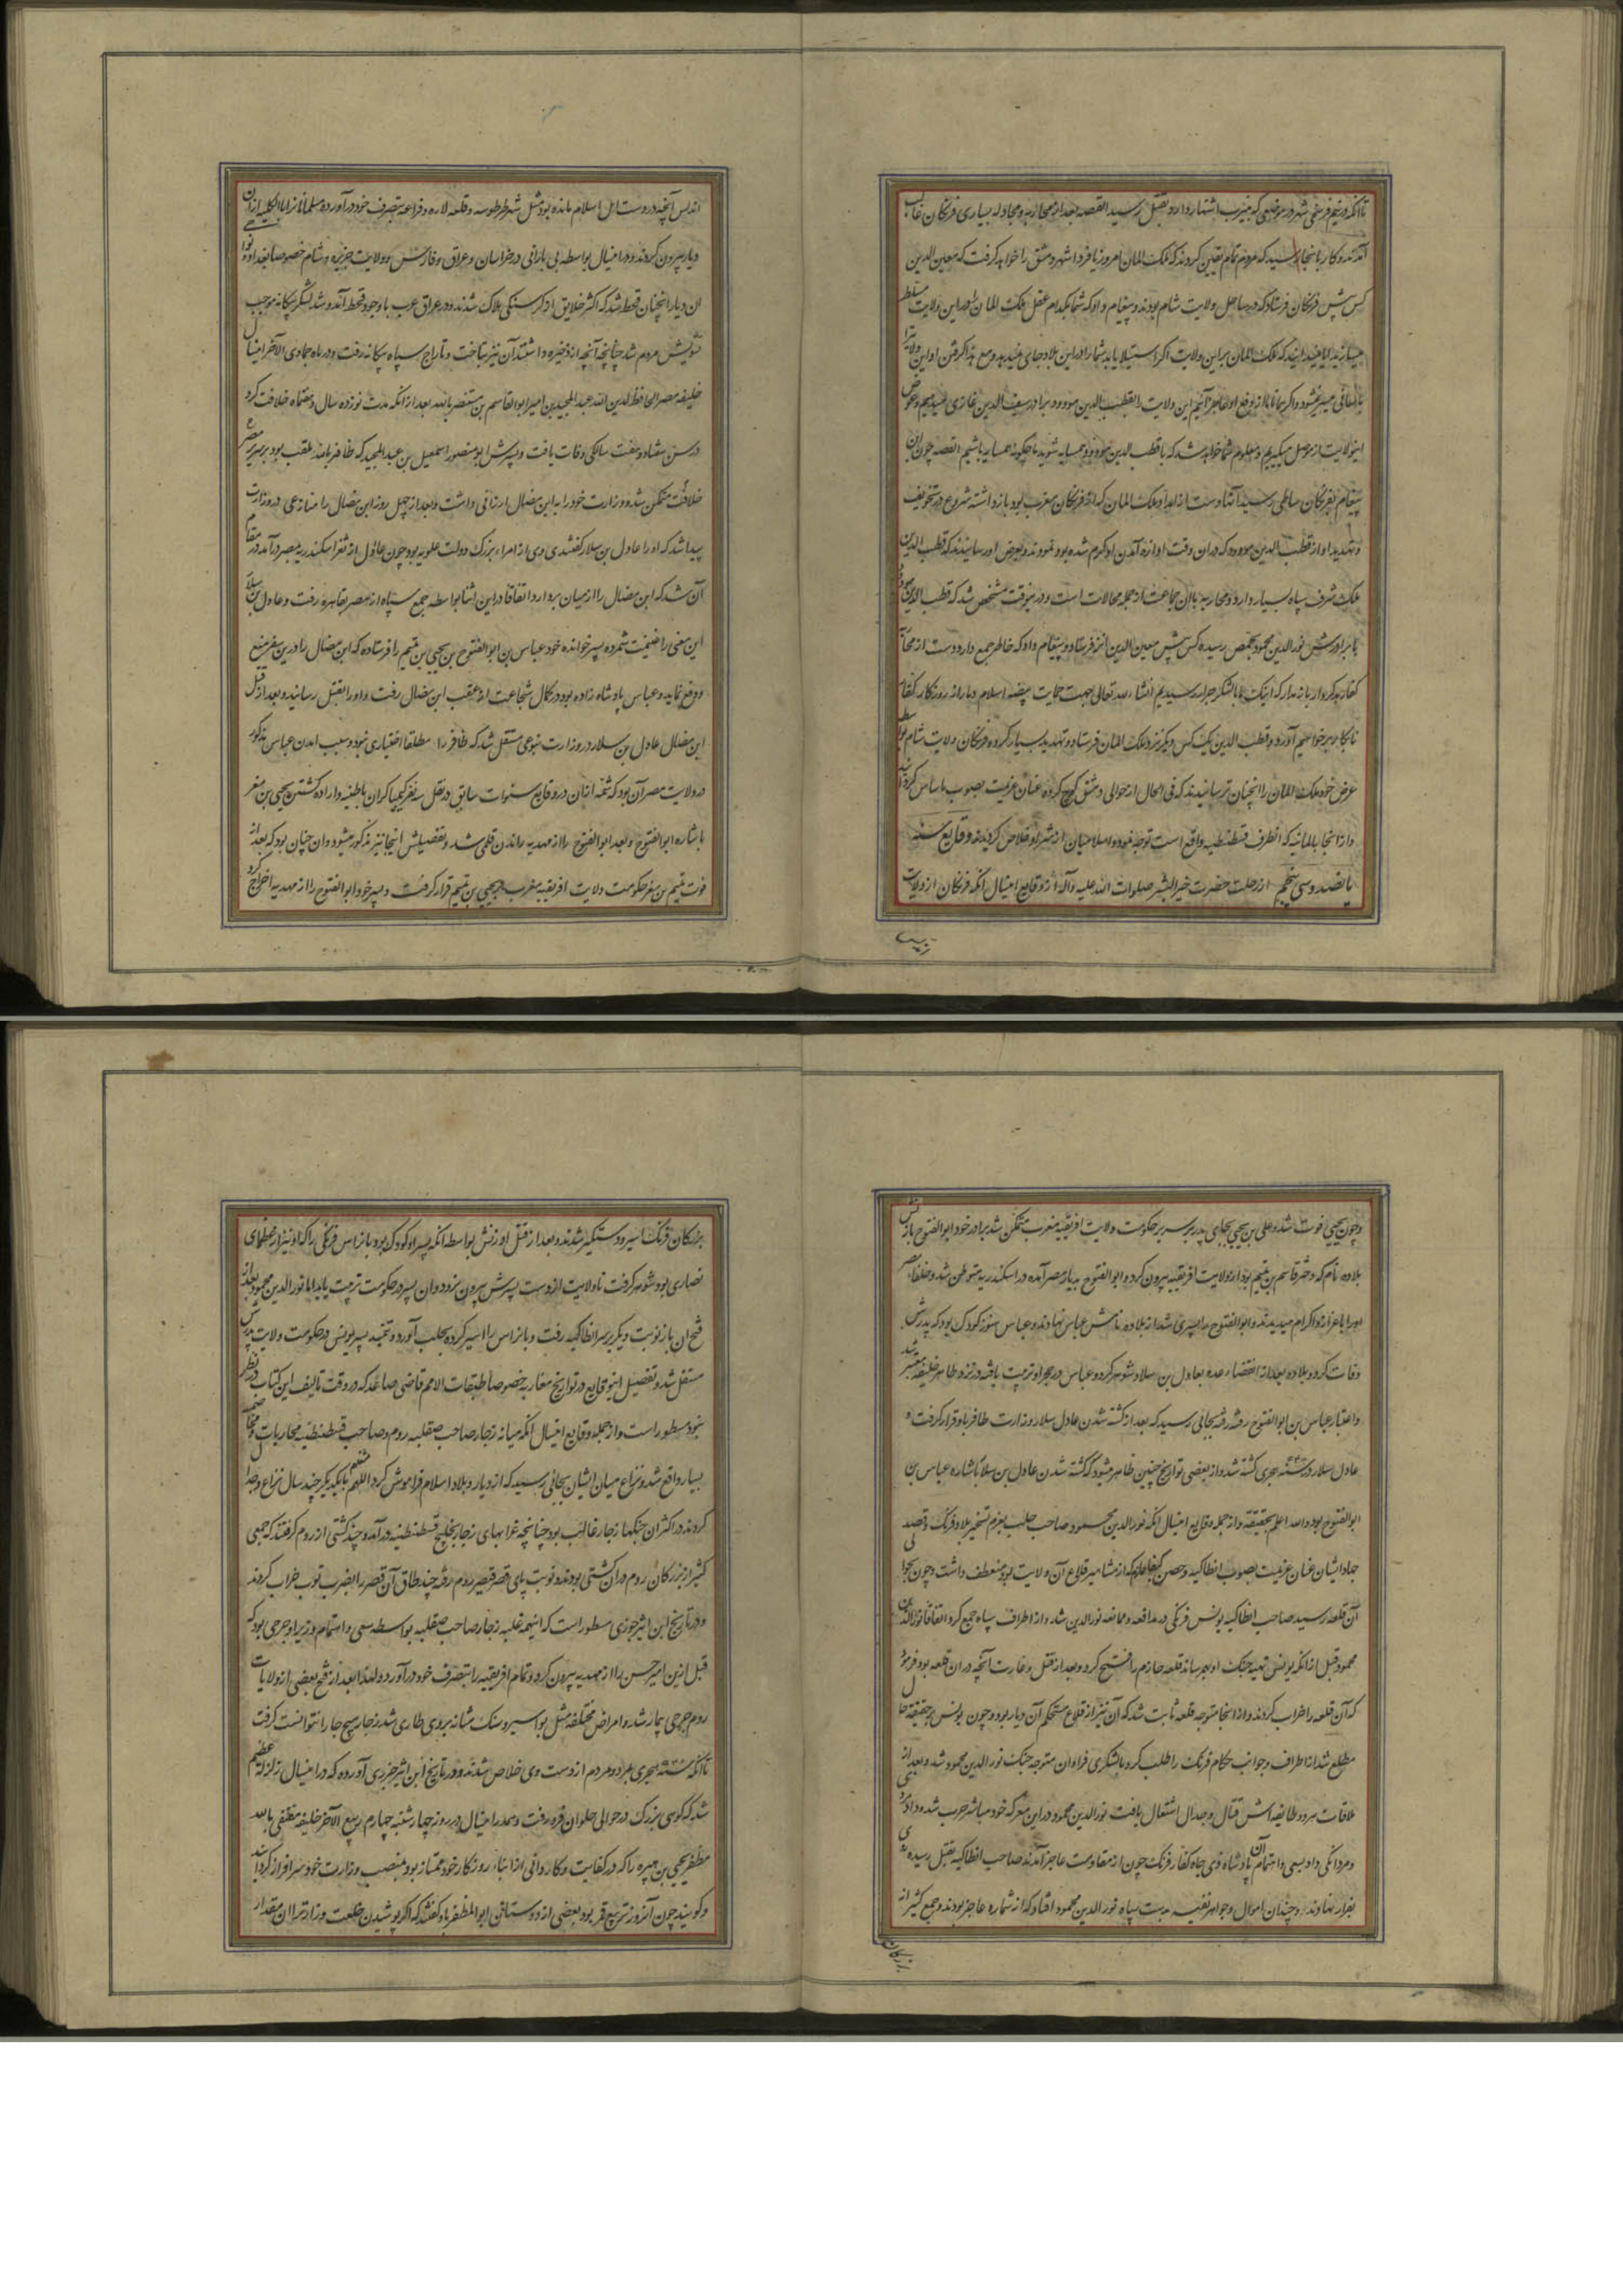 تا آنکه در نیم فرسخی شهر در موضعی که بنیرب اشتهار دارد بقتل رسید القصه بعد از محاربه و مجادله بسیاری فرنکان غالب
آمدند و کار بانجا رسید که مردم تمام یقین کردند که ملک المان امروز یا فردا شهر دمشق را خواهد کرفت که معین الدین
کس پیش فرنکان فرستاد که در ساحل ولایت شام بودند و پیغام داد که شما بکدام عقل ملک المان را درین ولایت مسلط
میسازید ایا نمیدانید که ملک المان برین ولایت اکر استیلا یابد شما را درین بلاد جای نمیدهد و مع هذا کرفتن او این ولایترا
باسانی میسر نمیشود و اکر ما دانیم از دفع او عاجز آئیم این ولایت را بقطب الدین مودود برادر سیف الدین غازی میدهیم و عوض
اینولایت از موصل میکیریم و معلوم شما خواهد شد که با قطب الدین مودود همسایه شوید یا چکونه همسایه باشیم القصه چون این
پیغام بفرنکان ساحلی رسید آنها دست از امداد ملک المان که از فرنکان مغرب بود بازداشته شروع در تخویف
و تهدید او از قطب الدین مودود که در ان وقت اوازه آمدن او کرم شده بود نمودند و بعرض او رسانیدند که قطب الدین
ملک شرف سپاه بسیار دارد و محاربه با ان جماعت از جمله محالات است و درینوقت مشخص شد که قطب الدین مودود
با برادرش نور الدین محمود بحمص رسیده کس پیش معین الدین انر فرستاد و پیغام داد که خاطر جمع دارد و دست از محاربه
کفار بدکردار باز ندارد که اینک ما با لشکر جرار رسیدیم انشاء الله تعالی جهت حمایت بیضه اسلام دمار از روزکار کفار
نابکار بر خواهیم آورد و قطب الدین یک کس دیکر نزد ملک المان فرستاد و تهدید بسیار کرده فرنکان ولایت شام بواسطه
غرض خود ملک المان را انچنان ترسانیدند که فی الحال از حوالی دمشق کوچ کرده عنان عزیمت بصوب باساس کردانید
و از انجا بالمانیه که انطرف قسطنطنیه واقع است توجه نمود و اسلامیان از شر او خلاص کردیدند وقایع سنه
پانصد و سی پنجم از رحلت حضرت خیر البشر صلوات الله علیه و آله از وقایع امسال آنکه فرنکان از ولایت
اندلس آنچه در دست اهل اسلام مانده بود مثل شهر طرطوسه و قلعه لارده و فراعه بتصرف خود در آورده مسلمانانرا بالکلیه از ان
دیار بیرون کردند و در امسال بواسطه بی بارانی در خراسان و عراق و فارس و ولایت جزیره و شام خصوصا بغداد و نواحی
ان دیار انچنان قحط شد که اکثر خلایق از کرسنکی هلاک شدند و در عراق عرب با وجود قحط آمد و شد لشکر بیکانه موجب
تشویش مردم شد چنانچه آنچه از ذخیره داشتند آن نیز بتاخت و تاراج سپاه بیکانه رفت و در ماه جمادی الاخر امسال
خلیفه مصر الحافظ لدین الله عبد المجید بن امیر ابوالقاسم بن مستنصر بالله بعد از انکه مدت نوزده سال و هفتماه خلافت کرد
در سن هفتاد و هفت سالکی وفات یافت و پسرش ابو منصور اسمعیل بن عبد المجید که ظافر بالله ملقب بود بر سریر مصر
خلافت متمکن شد و وزارت خود را به ابن مضال ارزانی داشت و بعد از چهل روز ابن مضال را منازعی در وزارت
پیدا شد که او را عادل بن سلار کفتندی وی از امراء بزرک دولت علویه بود چون عادل از ثغر اسکندریه بمصر در آمد در مقام
آن شد که ابن مضال را از میان بردارد اتفاقا در این اثنا بواسطه جمع سپاه از مصر بقاهره رفت و عادل بن سلار
این معنی را غنیمت شمرده پسر خوانده خود عباس بن ابوالفتوح بن یحیی بن تمیم را فرستاده که ابن مضال را درین سفر منع
و دفع نماید و عباس پادشاه زاده بود در کمال شجاعت از عقب ابن مضال رفت و او را بقتل رسانید و بعد از قتل
ابن مضال عادل بن سلار در وزارت بنوعی مستقل شد که ظافر را مطلقا اختیاری نبود و سبب امدن عباس مذکور
در ولایت مصر آن بود که شمه ازان در وقایع سنوات سابق در نقل سه نفر کیمیاکران باطنیه و اراده کشتن یحیی بن معز
باشاره ابوالفتوح و بعد ابوالفتوح را از مهدیه راندن قلمی شد و تفصیلش اینجا نیز مذکور میشود و ان چنان بود که بعد از
فوت تمیم بن معز حکومت ولایت افریقیه مغرب بیحیی بن تمیم قرار کرفت و پسر خود ابوالفتوح را از مهدیه اخراج کرد
و چون یحیی فوت شد و علی بن یحیی بجای پدر بر سریر حکومت ولایت افریقیه مغرب متمکن شد برادر خود ابوالفتوح با زنش
بلاده نام که دختر قاسم بن تمیم بود از ولایت افریقیه بیرون کرد و ابوالفتوح بدیار مصر آمده در اسکندریه متوطن شد و خلفاء مصر
او را با عزاز و اکرام میدیدند و ابوالفتوح را پسری شد از بلاده نامش عباس نهادند و عباس هنوز کودک بود که پدرش
وفات کرد و بلاده بعد از انقضاء عده بعادل بن سلار شوهر کرد و عباس در حجر او تربیت یافته در نزد ظافر خلیفه معتبر شد
و اعتبار عباس بن ابوالفتوح رفته رفته بجائی رسید که بعد از کشته شدن عادل سلار وزارت ظافر باو قرار کرفت و
عادل سلار در سنه هجری کشته شد و از بعضی تواریخ چنین ظاهر میشود که کشته شدن عادل بن سلار باشاره عباس بن
ابوالفتوح بود والله اعلم بحقیقته و از جمله وقایع امسال انکه نور الدین محمود صاحب حلب بعزم تسخیر بلاد فرنک و قصد
جهاد ایشان عنان عزیمت بصوب انطاکیه و حصن که از مشاهیر قلاع آن ولایت بود منعطف داشت و چون بحوالی
آن قلعه رسید صاحب انطاکیه یونس فرنکی در مدافعه و ممانعه نور الدین شد و از اطراف سپاه جمع کرد اتفاقا نور الدین
محمود قبل از انکه یونس تهیه جنک او بهم رساند قلعه حازم را فتح کرد و بعد از قتل و غارت آنچه در ان قلعه بود فرمود
که آن قلعه را خراب کردند و از انجا متوجه قلعه ثابت شد که آن نیز از قلاع مستحکم آن دیار بود و چون یونس بر حقیقت حال
مطلع شد از اطراف و جوانب حکام فرنک را طلب کرد با لشکری فراوان متوجه جنک نور الدین محمود شد و بعد از
ملاقات هر دو طایفه آتش قتال و جدال اشتعال یافت نور الدین محمود در این معرکه خود مباشر حرب شد و داد مردی
و مردانکی داد و بسعی و اهتمام آن پادشاه ذی جاه کفار فرنک چون از مقاومت عاجز آمدند صاحب انطاکیه بقتل رسیده روی
بفرار نهادند و چندان اموال و جواهر نفیسه بدست سپاه نور الدین محمود افتاد که از شماره عاجز بودند و جمع کثیر از
بزرکان
بزرکان فرنک اسیر و دستکیر شدند و بعد از قتل او زنش بواسطه انکه پسر او کودک بود بارناس فرنکی را که او نیز از عظمای
نصاری بود شوهر کرفت تا ولایت از دست پسرش بیرون نرود و ان پسر در حکومت تربیت یابد اما نور الدین محمود بعد از
فتح ان باز نوبت دیکر بر سر انطاکیه رفت و بارناس را اسیر کرده بحلب آورد و تخمید پسر یونس در حکومت ولایت پدرش
مستقل شد و تفصیل اینوقایع در تواریخ مغاربه خصوصا طبقات الامم قاضی صاعد که در وقت تالیف این کتاب در نظر
نبود مسطور است و از جمله وقایع امسال انکه میانه زجار صاحب صقلیه روم و صاحب قسطنطنیه محاربات و مخاصمه
بسیار واقع شد و نزاع میان ایشان بجائی رسید که از دیار و بلاد اسلام فراموش کرد اللهم با یکدیکر چند سال نزاع و جدال
کردند در اکثر ان جنکها زجار غالب بود چنانچه غرابهای زجار بخلیج قسطنطنیه در آمد و چند کشتی از روم کرفتند که جمعی
کثیر از بزرکان روم در ان کشتی بودند و نوبت پای قصر قیصر روم رفته چند طاق آن قصر را بضرب توپ خراب کردند
و در تاریخ ابن اثیر جزری مسطور است که اینهمه غلبه زجار صاحب صقلیه بواسطه سعی و اهتمام وزیر او جرجی بود که
قبل ازین امیر حسن را از مهدیه بیرون کرد و تمام افریقیه را بتصرف خود در آورد و لهذا بعد از فتح بعضی از ولایات
روم جرجی بیمار شد و امراض مختلفه مثل بواسیر و سنک مثانه بر وی طاری شد زجار هیچ جا را نتوانست کرفت
تا آنکه سنه هجری بمرد و مردم از دست وی خلاص شدند و در تاریخ ابن اثیر جزری آورده که در امسال زلزله عظیم
شد که کوهی بزرک در حوالی حلوان فرو رفت و همدر امسال در روز چهارشنبه چهارم ربیع الاخر خلیفه مقتفی بالله
مظفر یحیی بن هبیره را که در کفایت و کاردانی از ابناء روزکار خود ممتاز بود بمنصب وزارت خود سرافراز کردانید
و کویند چون آنروز تربیع قمر بود بعضی از دوستان ابوالمظفر باو کفتند که اکر پوشیدن خلعت وزارت را ان مقدار